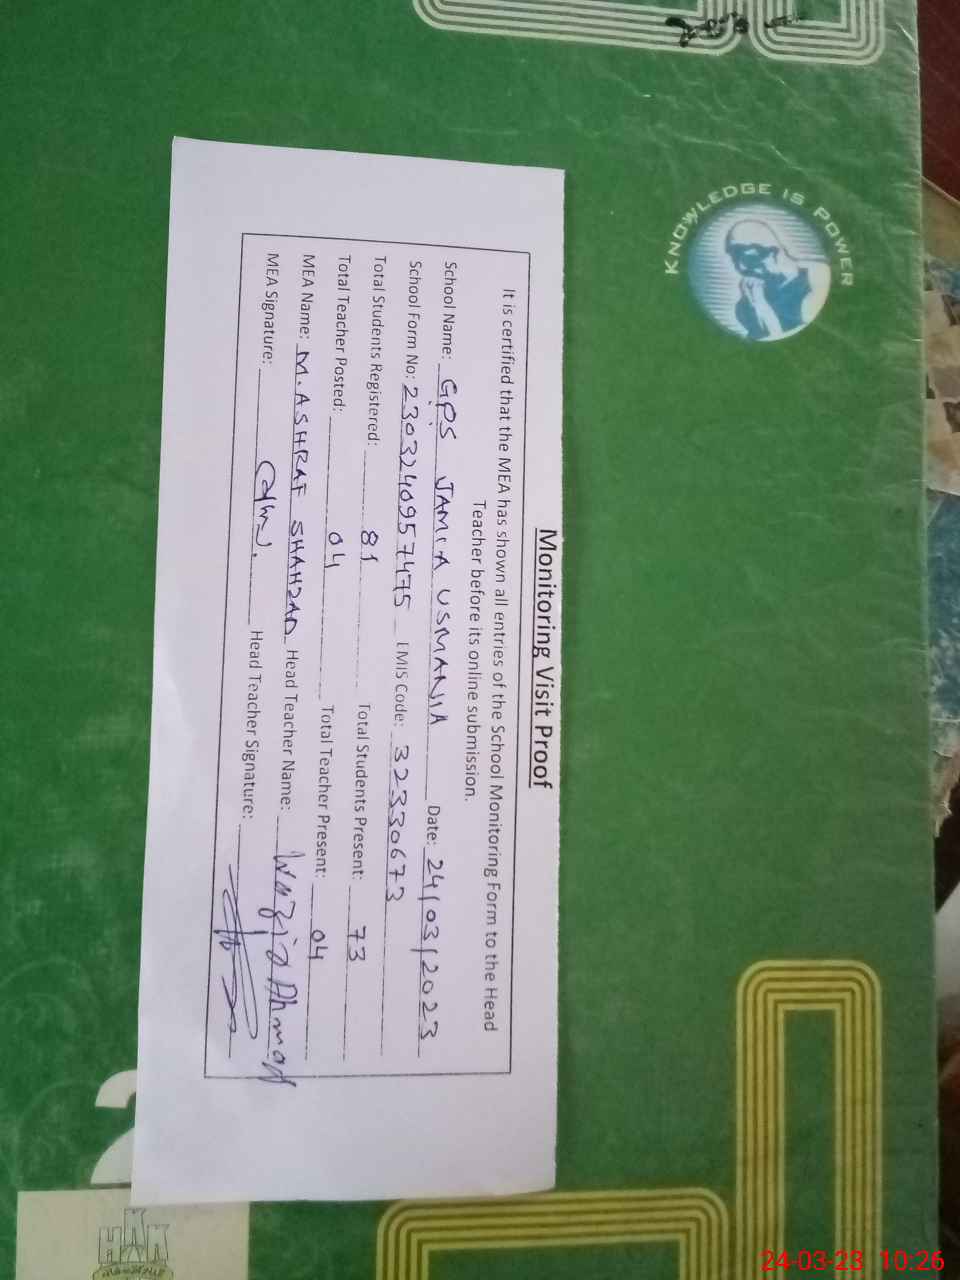 Monitoring Visit Proof
It is certified that the MEA has shown all entries of the School Monitoring Form to the Head
Teacher before its online submission.
School Name: GPS JAMIA USMANIA Date: 24/03/2023
School Form No: 230324095747475 EMIS Code: 32330673
Total Students Registered: 81 Total Students Present: 73
Total Teacher Posted: 04 Total Teacher Present: 04
MEA Name: M. ASHRAF SHAHZAD Head Teacher Name: Wazir Ahmad
MEA Signature: Head Teacher Signature:
KNOWLEDGE IS POWER
2
HKK
24-03-23 10:26